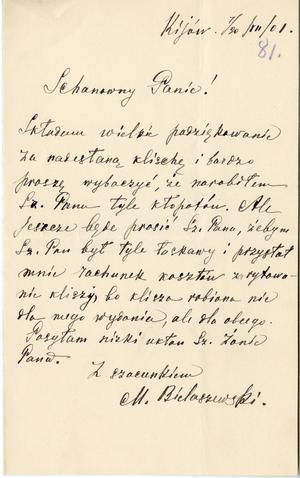 Kijów. 7/20/VII/01.
81.
Schanowny Panie!
Składam wielkie podziękowanie
za nadesłaną klischę i bardzo
proszę wybaczyć, że narobiłem
Sz. Panu tyle kłopotów. Ale
jeszcze będę prosić Sz. Pana, żebym
Sz. Pan był tyle łaskawy i przysłał
mnie rachunek kosztów zrytowa-
nie kliszy, bo klisza robiona nie
dla mego wydania, ale dla obcego.
Posyłam nizki ukłon Sz. Żonie
Pana.
Z szacunkiem
M. Bielaszewski.